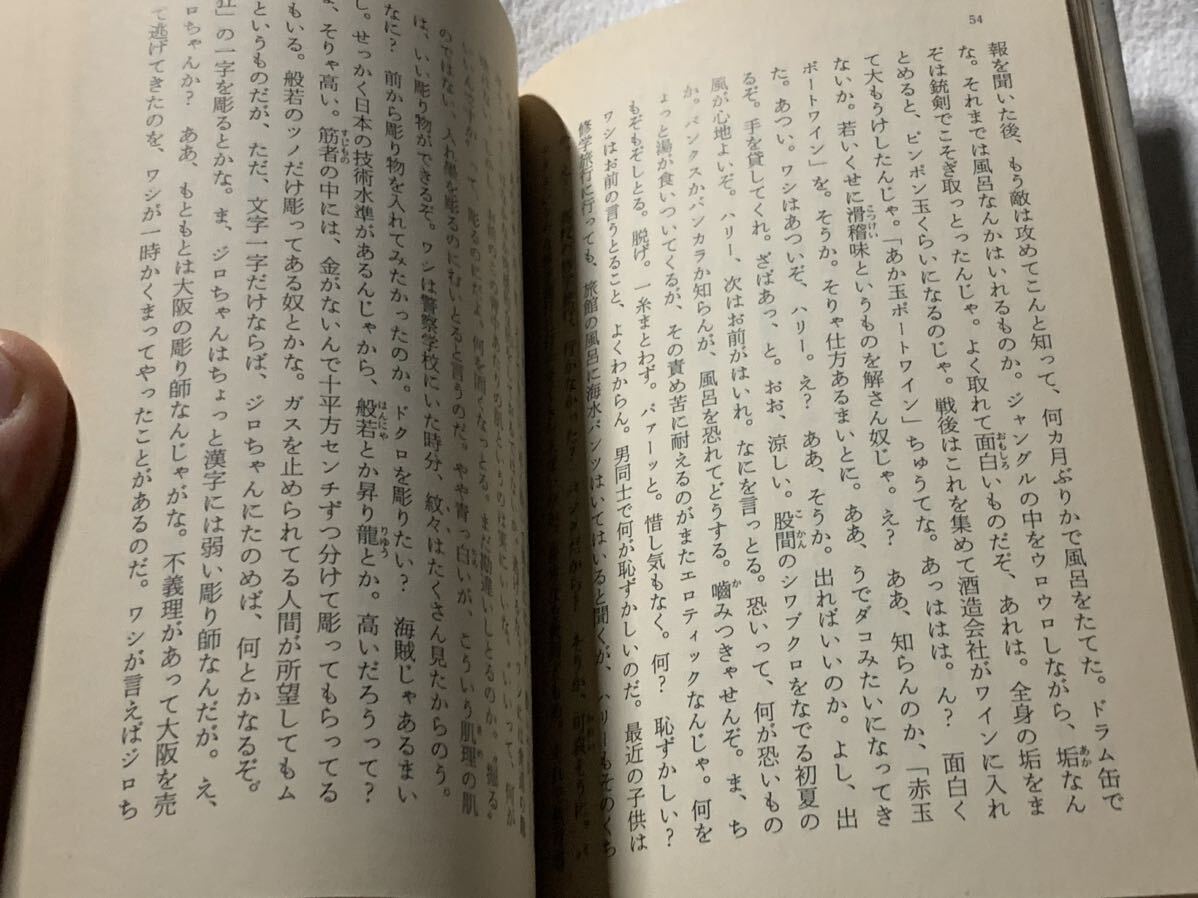 54
報を聞いた後、もう敵は攻めてこんと知って、何カ月ぶりかで風呂をたてた。ドラム缶で
な。それまでは風呂なんかはいれるものか。ジャングルの中をウロウロしながら、垢なん
ぞは銃剣でこそぎ取っとったんじゃ。よく取れて面白いものだぞ、あれは。全身の垢をま
とめると、ピンポン玉くらいになるのじゃ。戦後はこれを集めて酒造会社がワインに入れ
て大もうけしたんじゃ。「あか玉ポートワイン」ちゅうてな。あっははは。ん?　面白く
ないか。若いくせに滑稽味というものを解さん奴じゃ。え?　ああ、知らんのか、「赤玉
ポートワイン」を。そうか。そりゃ仕方あるまいとに。ああ、うでダコみたいになってき
た。あつい。ワシはあついぞ、ハリー。え?　ああ、そうか。出ればいいのか。よし、出
るぞ。手を貸してくれ。ざばあっ、と。おお、涼しい。股間のシワブクロをなでる初夏の
風が心地よいぞ。ハリー、次はお前がはいれ。なにを言っとる。恐いって、何が恐いもの
か。パンクスかバンカラか知らんが、風呂を恐れてどうする。嚙みつきゃせんぞ。ま、ち
ょっと湯が食いついてくるが、その責め苦に耐えるのがまたエロティックなんじゃ。何を
もぞもぞしとる。脱げ。一糸まとわず。バァーッと。惜し気もなく。何?　恥ずかしい?
ワシはお前の言うとること、よくわからん。男同士で何が恥ずかしいのだ。最近の子供は
修学旅行に行っても、旅館の風呂に海水パンツはいてはいると聞くが、ハリーもそのくち
のではない、入れ墨を彫るのにむいとると言うのだ。やや青っ白いが、こういう肌理の肌
は、いい彫り物ができるぞ。ワシは警察学校にいた時分、紋々はたくさん見たからのう。
なに?　前から彫り物を入れてみたかったのか。ドクロを彫りたい?　海賊じゃあるまい
し。せっかく日本の技術水準があるんじゃから、般若とか昇り龍とか。高いだろうって?
ま、そりゃ高い。筋者の中には、金がないんで十平方センチずつ分けて彫ってもらってる
もいる。般若のツノだけ彫ってある奴とかな。ガスを止められてる人間が所望してもム
というものだが、ただ、文字一字だけならば、ジロちゃんにたのめば、何とかなるぞ。
」の一字を彫るとかな。ま、ジロちゃんはちょっと漢字には弱い彫り師なんだが。え、
ロちゃんか?　ああ、もともとは大阪の彫り師なんじゃがな。不義理があって大阪を売
て逃げてきたのを、ワシが一時かくまってやったことがあるのだ。ワシが言えばジロち